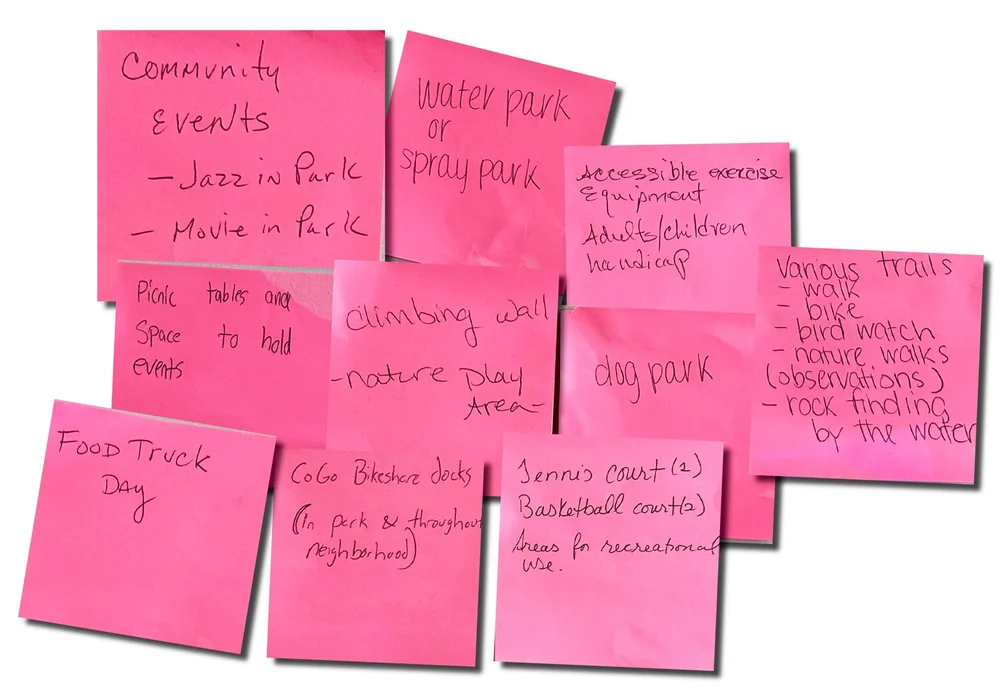 Community
Events
- Jazz in Park
- Movie in Park
water park
or
spray park
Accessible exercise
Equipment
Adults/children
handicap
Picnic tables and
Space to hold
events
climbing wall
- nature Play
Area -
dog park
Various trails
- walk
- bike
- bird watch
- nature walks
(observations)
- rock finding
by the water
Food Truck
Day
CoGo Bikeshare docks
(in park & throughout
neighborhood)
Tennis court (2)
Basketball court (2)
Areas for recreational
use.